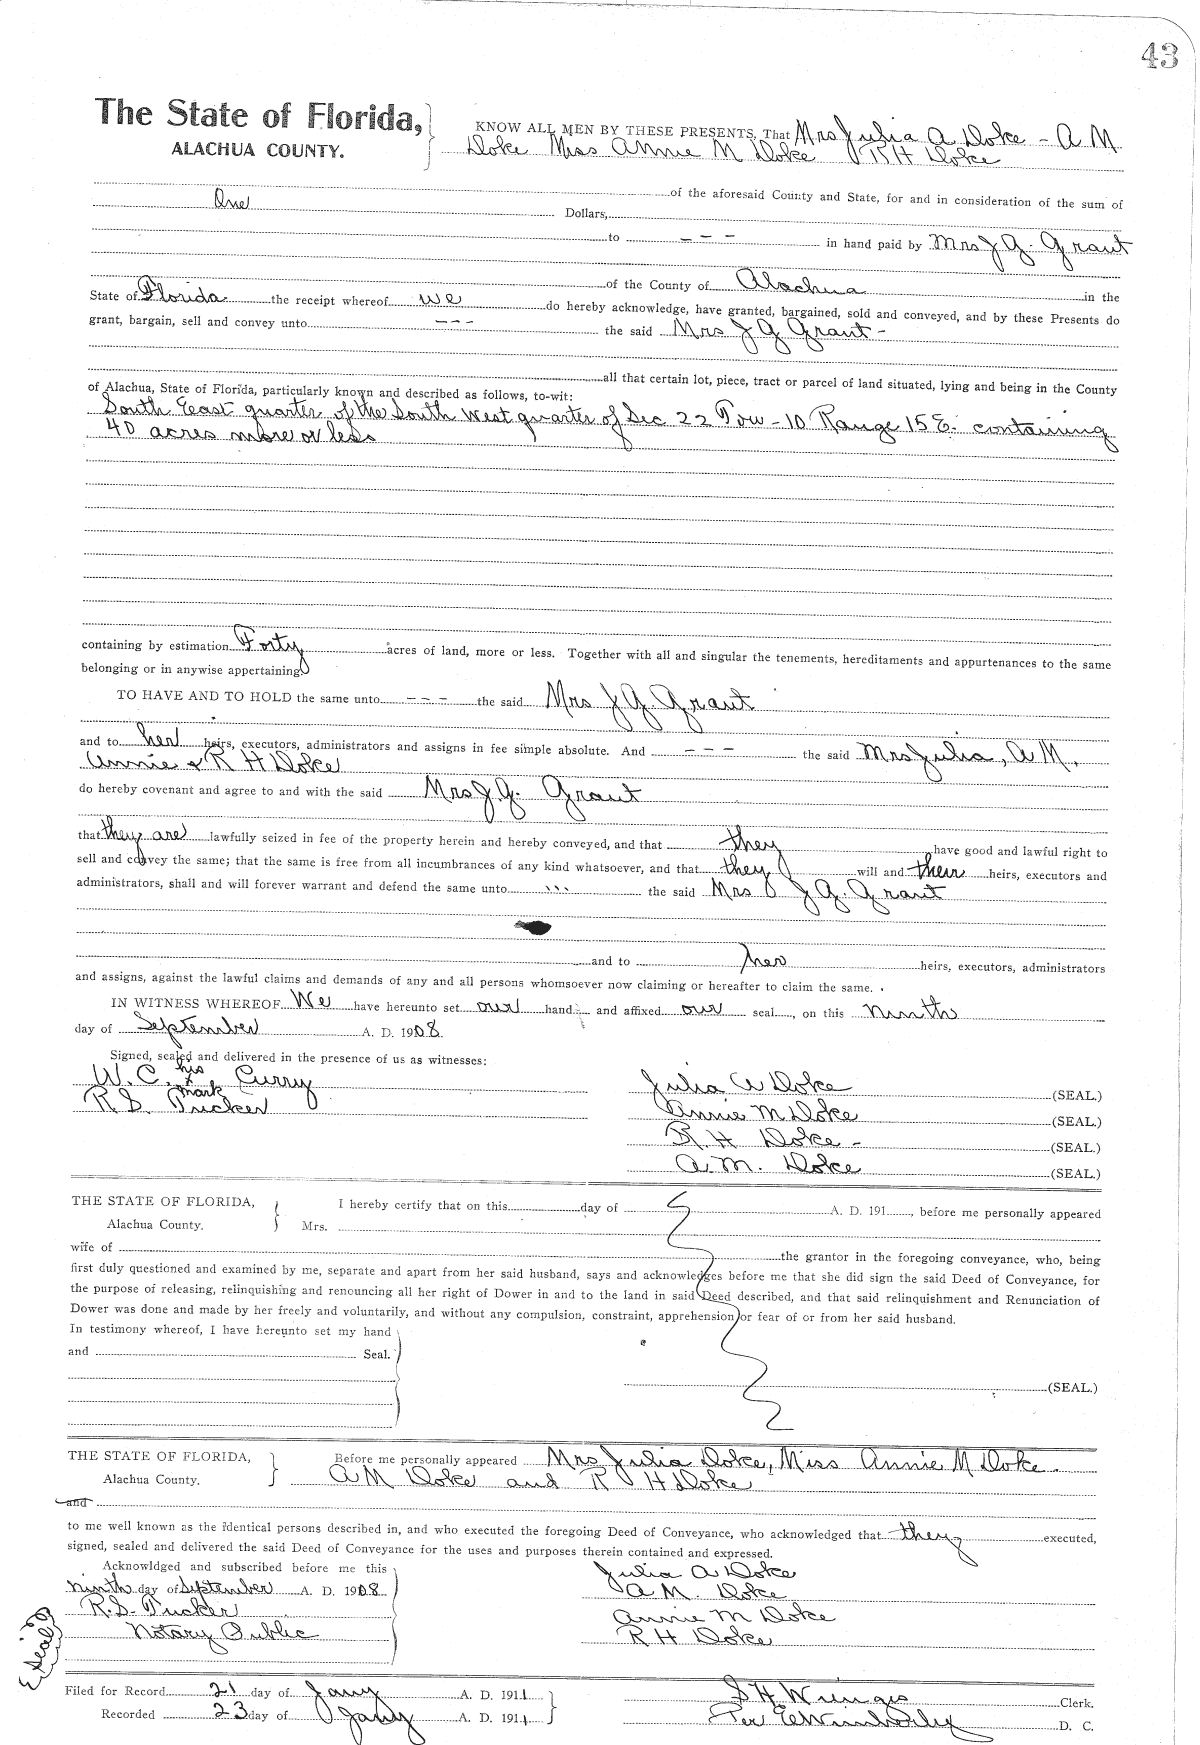 43
The State of Florida,
ALACHUA COUNTY.
KNOW ALL MEN BY THESE PRESENTS, That Mrs Julia A Doke - A M
Doke Miss Annie M Doke R H Doke
of the aforesaid County and State, for and in consideration of the sum of
One Dollars,
to - - - in hand paid by Mrs J G. Grant
of the County of Alachua in the
State of Florida the receipt whereof we do hereby acknowledge, have granted, bargained, sold and conveyed, and by these Presents do
grant, bargain, sell and convey unto - - - the said Mrs J G Grant -
all that certain lot, piece, tract or parcel of land situated, lying and being in the County
of Alachua, State of Florida, particularly known and described as follows, to-wit:
South East quarter of the South West quarter of Sec 22 Tow - 10 Range 15 E. containing
40 acres more or less
containing by estimation Forty acres of land, more or less. Together with all and singular the tenements, hereditaments and appurtenances to the same
belonging or in anywise appertaining
TO HAVE AND TO HOLD the same unto - - - the said Mrs J G. Grant
and to her heirs, executors, administrators and assigns in fee simple absolute. And - - - the said Mrs Julia, A M,
Annie & R H Doke
do hereby covenant and agree to and with the said Mrs J. G. Grant
that they are lawfully seized in fee of the property herein and hereby conveyed, and that they have good and lawful right to
sell and convey the same; that the same is free from all incumbrances of any kind whatsoever, and that they will and their heirs, executors and
administrators, shall and will forever warrant and defend the same unto the said Mrs J G. Grant
and to her heirs, executors, administrators
and assigns, against the lawful claims and demands of any and all persons whomsoever now claiming or hereafter to claim the same.
IN WITNESS WHEREOF We have hereunto set our hand and affixed our seal, on this ninth
day of September A. D. 1908.
Signed, sealed and delivered in the presence of us as witnesses:
W. C. his x mark Curry
R S. Tucker
Julia A Doke (SEAL.)
Annie M Doke (SEAL.)
R. H Doke - (SEAL.)
A. M. Doke (SEAL.)
THE STATE OF FLORIDA,
Alachua County.
I hereby certify that on this day of A. D. 191 , before me personally appeared
Mrs.
wife of the grantor in the foregoing conveyance, who, being
first duly questioned and examined by me, separate and apart from her said husband, says and acknowledges before me that she did sign the said Deed of Conveyance, for
the purpose of releasing, relinquishing and renouncing all her right of Dower in and to the land in said Deed described, and that said relinquishment and Renunciation of
Dower was done and made by her freely and voluntarily, and without any compulsion, constraint, apprehension or fear of or from her said husband.
In testimony whereof, I have hereunto set my hand
and Seal.
(SEAL.)
THE STATE OF FLORIDA,
Alachua County.
Before me personally appeared Mrs Julia Doke, Miss Annie M Doke.
A M Doke and R H Doke
and
to me well known as the identical persons described in, and who executed the foregoing Deed of Conveyance, who acknowledged that they executed,
signed, sealed and delivered the said Deed of Conveyance for the uses and purposes therein contained and expressed.
Acknowldged and subscribed before me this
ninth day of September A. D. 1908
R. S. Tucker
Notary Public
Seal
Julia A Doke
A M. Doke
Annie M Doke
R H Doke
Filed for Record 21 day of Jany A. D. 1911
Recorded 23 day of Jany A. D. 1911
S H Wienges Clerk.
Per E Wimberly D. C.